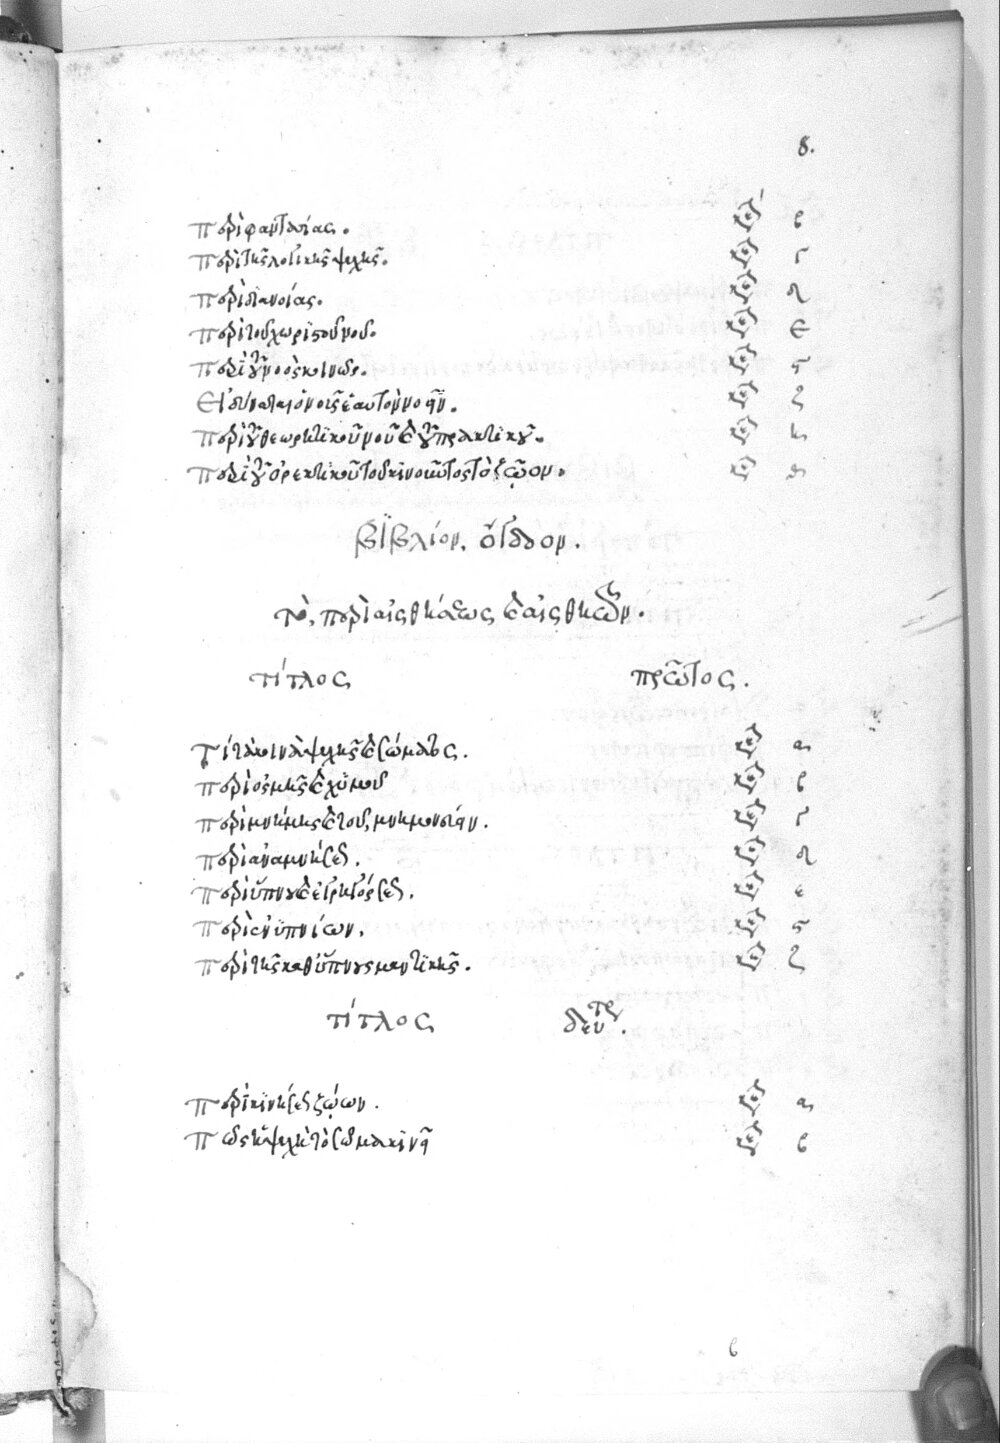 8.
Περὶ φαντασίας. κεφ β
Περὶ τῆς λογικῆς ψυχῆς. κεφ γ
Περὶ διανοίας. κεφ δ
Περὶ τοῦ χωριστοῦ νοῦ. κεφ ε
Περὶ τοῦ πρὸς
Εἰ δύναται ὁ νοῦς ἑαυτὸν νοεῖν. κεφ ζ
Περὶ τοῦ θεωρητικοῦ νοῦ καὶ τοῦ πρακτικοῦ. κεφ η
Περὶ τοῦ ὀρεκτικοῦ τοῦ κινοῦντος τὸ ζῷον. κεφ θ
βιβλίον, ὄγδοον.
τὸ, περὶ αἰσθήσεως καὶ αἰσθητῶν.
τίτλος πρῶτος.
Τί τὰ κοινὰ ψυχῆς καὶ σώματος. κεφ α
Περὶ ὀσμῆς καὶ χυμοῦ κεφ β
Περὶ μνήμης καὶ τοῦ μνημονεύειν. κεφ γ
Περὶ ἀναμνήσεως. κεφ δ
Περὶ ὕπνου καὶ ἐγρηγόρσεως. κεφ ε
Περὶ ἐνυπνίων. κεφ ς
Περὶ τῆς καθ' ὕπνους μαντικῆς. κεφ ζ
τίτλος δεύτερ.
Περὶ κινήσεως ζώων. κεφ α
Πῶς ἡ ψυχὴ τὸ σῶμα κινεῖ κεφ β